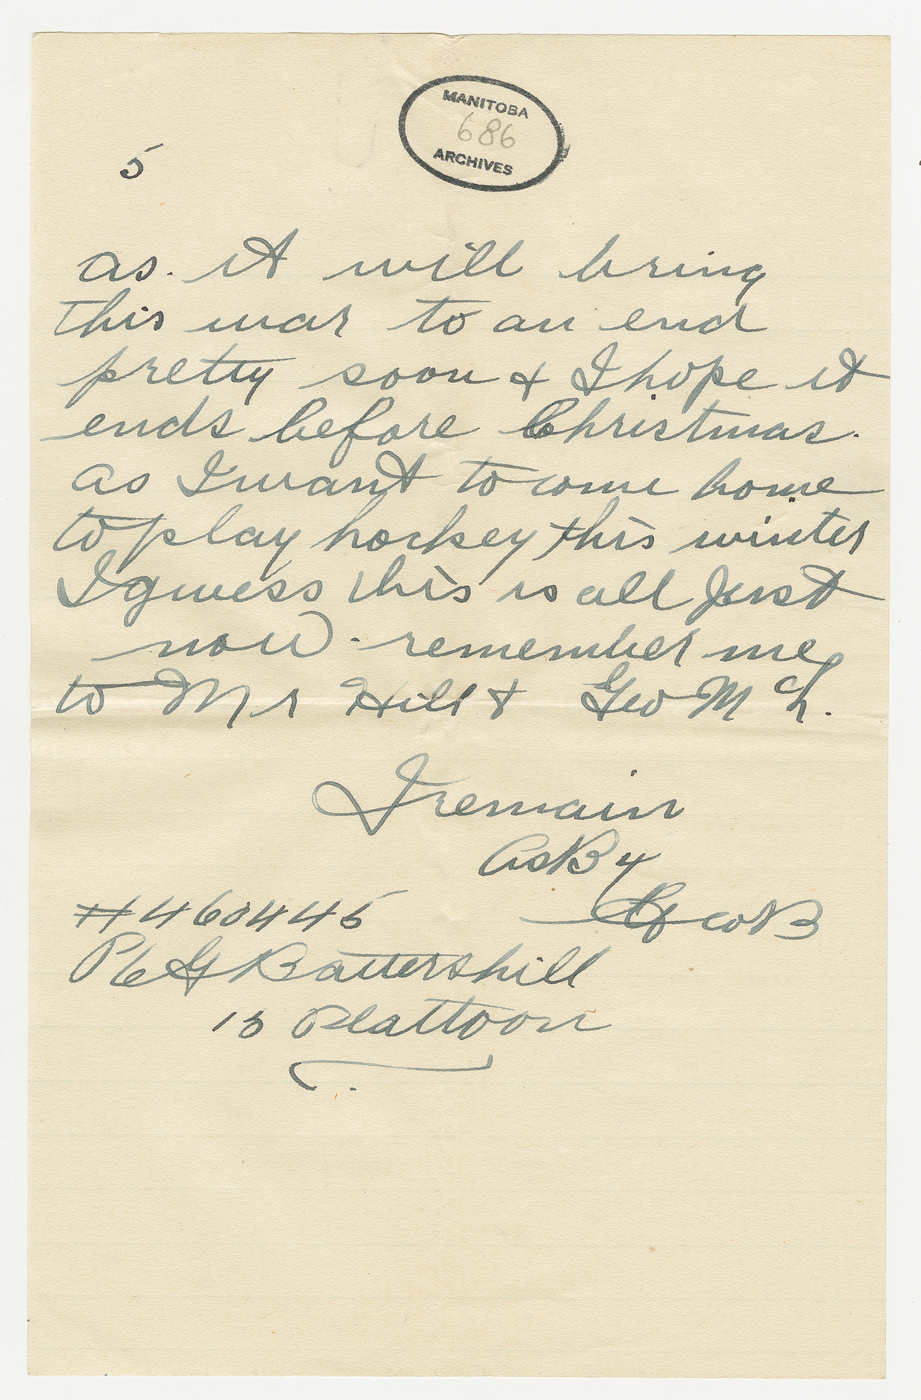 MANITOBA
686
ARCHIVES
5
as. it will bring
this war to an end
pretty soon & I hope it
ends before Christmas.
as I want to come home
to play hockey this winter
I guess this is all Just
now. remember me
to Mr Hill & Geo McL.
I remain
As B4
Geo B
#460445
Pte G Battershill
15 Plattoon